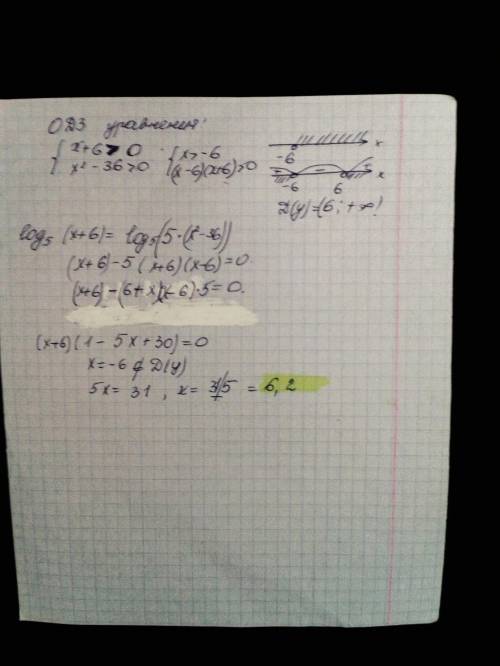 ОДЗ уравнения:
{ x+6>0 { x>-6
x² - 36>0 (x-6)(x+6)>0
x
-6
+ - + x
-6 6
D(y)=(6; +∞)
log₅ (x+6) = log₅(5·(x²-36))
(x+6) - 5 (x+6)(x-6) = 0.
(x+6) - (6+x)(x-6)·5 = 0.
(x+6)(1 - 5x + 30) = 0
x = -6 ∉ D(y)
5x = 31 , x = 31/5 = 6,2